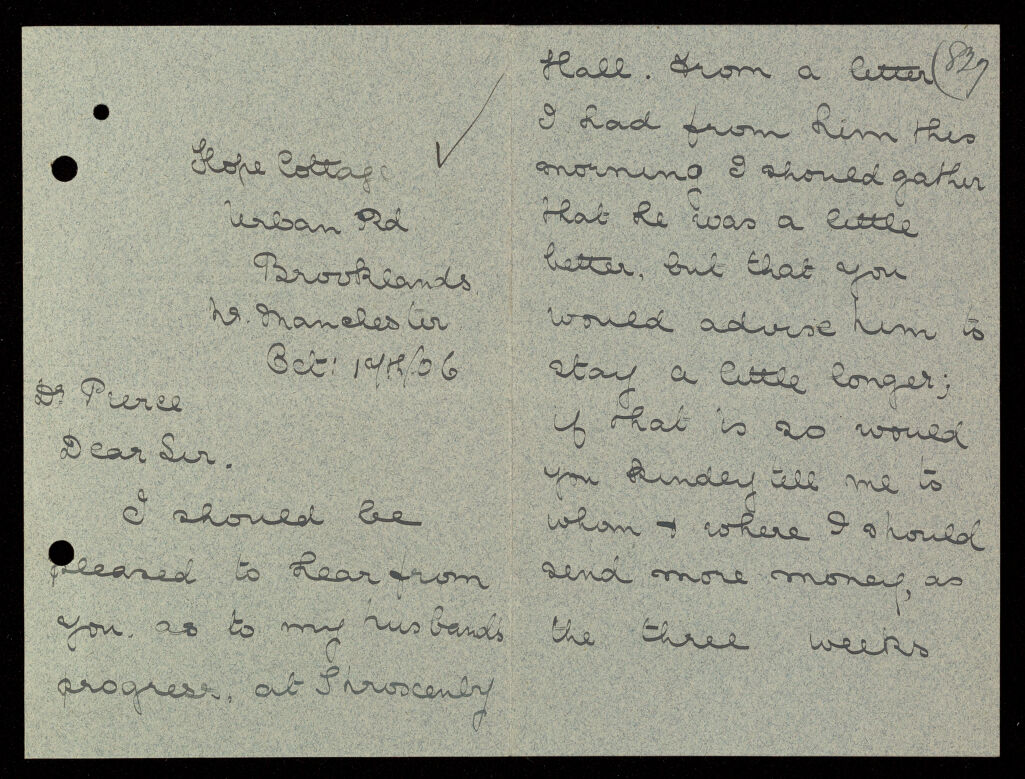 Hope Cottage
Urban Rd
Brooklands
Nr. Manchester
Oct: 19th/06
Dr Pierce
Dear Sir.
I should be
pleased to hear from
you. as to my husbands
progress, at Throxenby
Hall. From a letter
(82)
I had from him this
morning I should gather
that he was a little
better, but that you
would advise him to
stay a little longer;
if that is so would
you kindly tell me to
whom & where I should
send more money, as
the three weeks